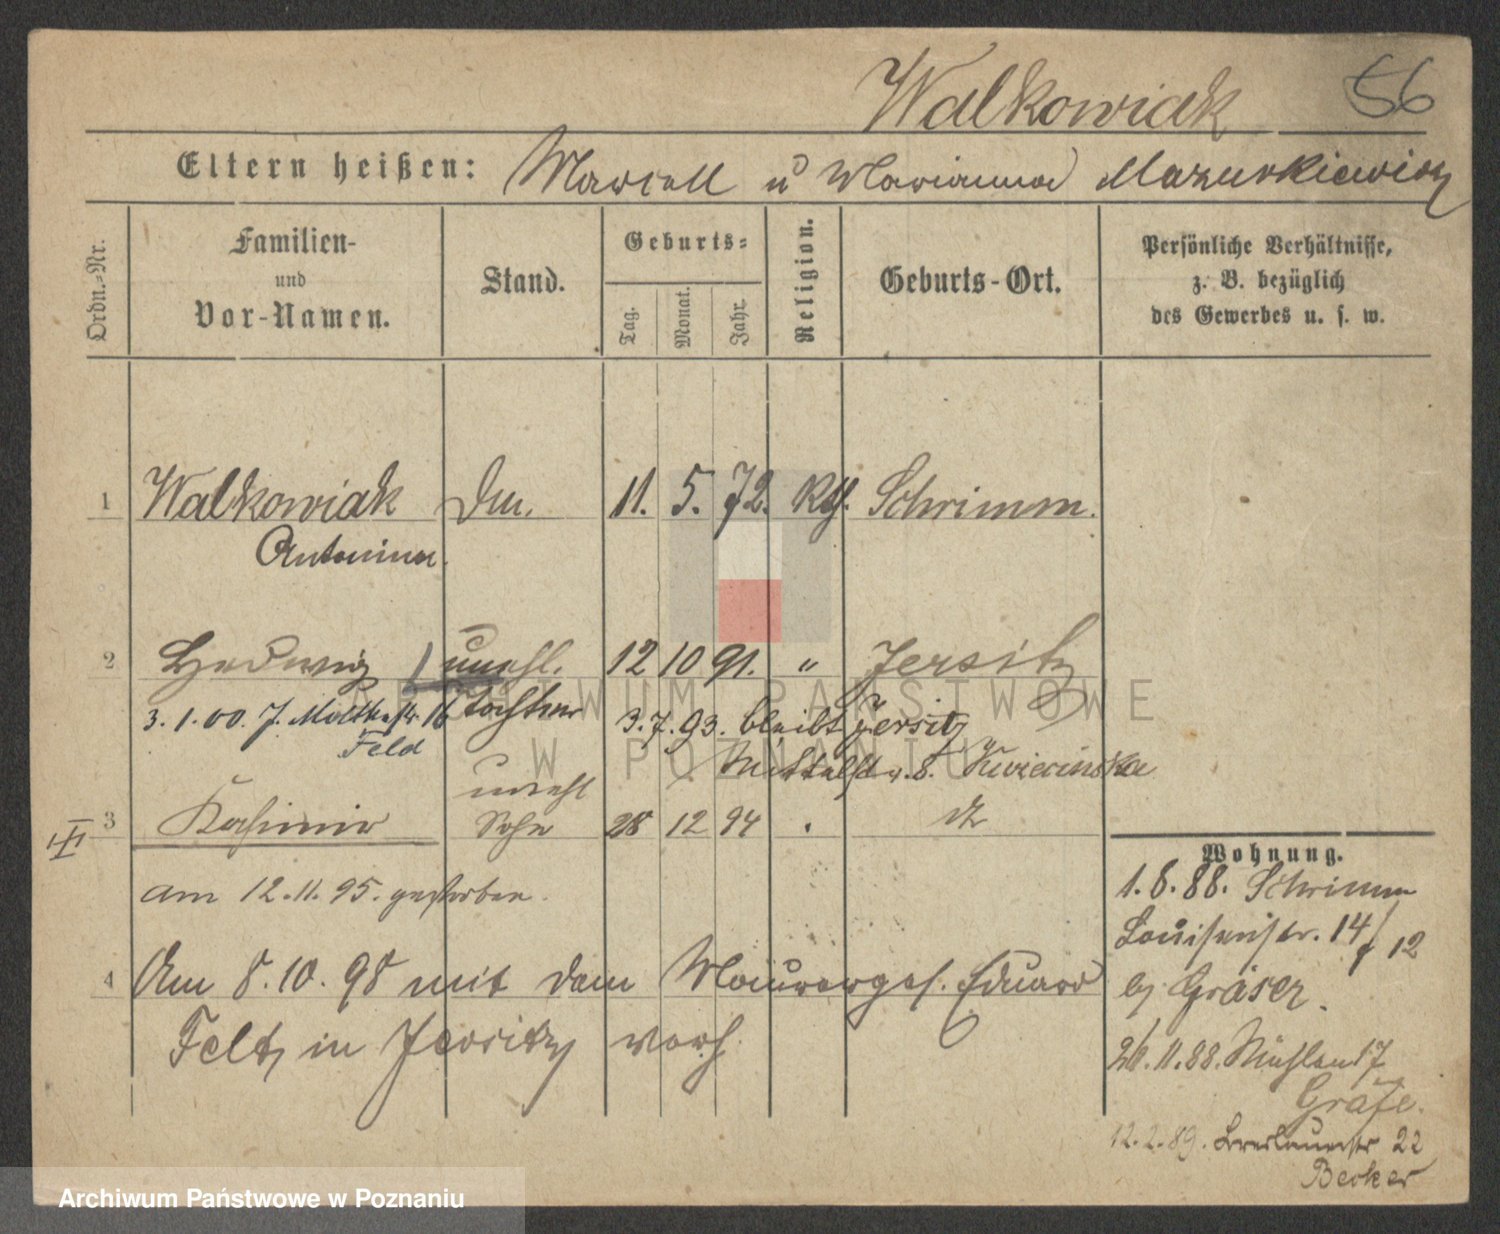 Walkowiak 56
Eltern heißen: Marcell u Marianna Mazurkiewicz
Ordn.-Nr.
Familien-
und
Vor-Namen.
Stand.
Geburts-
Tag.
Monat.
Jahr.
Religion.
Geburts-Ort.
Persönliche Verhältnisse,
z. B. bezüglich
des Gewerbes u. s. w.
1 Walkowiak 11. 5. 72. Kth. Schrimm.
Antonina
2 Hedwig unehl. 12 10 91. " Jersitz
3.1.00. J. Moltkestr. 16 Tochter 3.7.93. bleibt Jersitz
Feld Mittelstr. 8. Kwiecinska
unehl
3 Kasimir Sohn 28 12 94
am 12.11.95. gestorben.
4 Am 8.10.98 mit dem Maurerges. Eduard
Feltz in Jersitz verh.
Wohnung.
1.8.88. Schrimm
Louisenstr. 14/12
b/ Gräser.
26.11.88. Mühlen 17
Gräfe.
12.2.89. Breslauerstr 22
Becker
ARCHIWUM PAŃSTWOWE
W POZNANIU
Archiwum Państwowe w Poznaniu